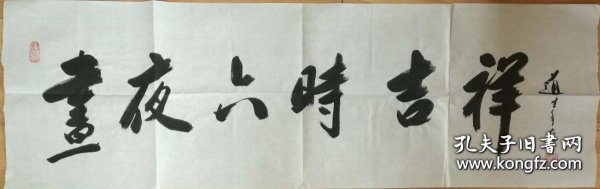 晝夜六時吉祥
孔夫子旧書网
www.kongfz.com